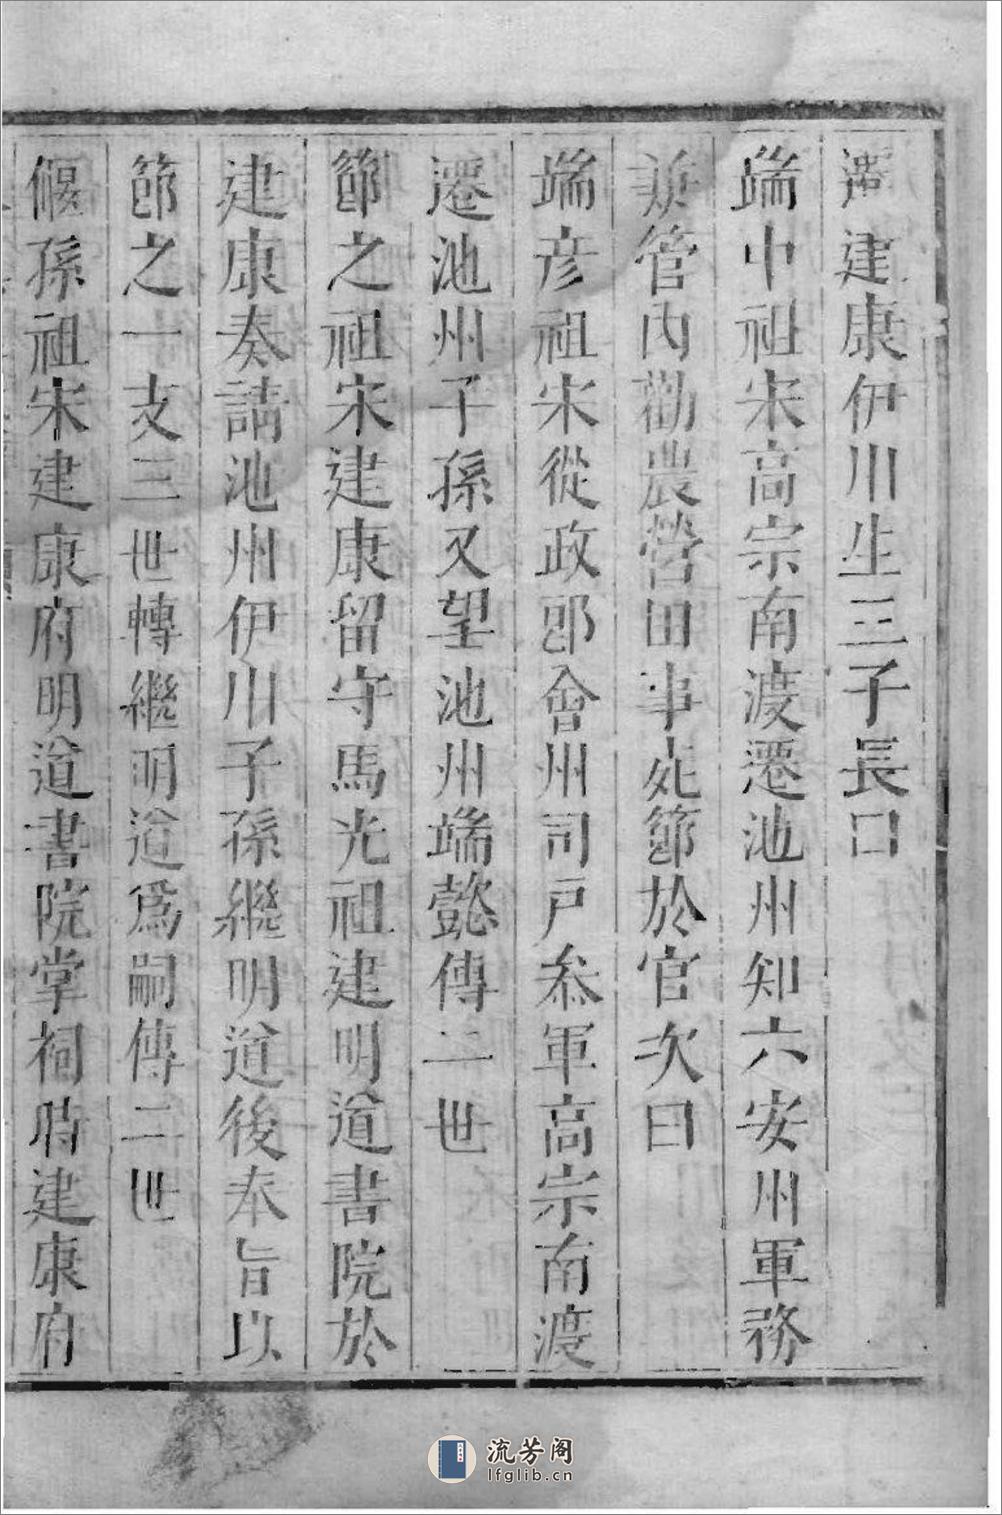 遷建康伊川生三子長曰
端中祖宋高宗南渡遷池州知六安州軍務
兼管内勸農營田事死節於官次曰
端彦祖宋從政郎會州司戸叅軍高宗南渡
遷池州子孫又望池州端懿傳二世
節之祖宋建康留守馬光祖建明道書院於
建康奏請池州伊川子孫繼明道後奉旨以
節之一支三世轉繼明道爲嗣傳二世
偃孫祖宋建康府明道書院掌祠時建康府
流芳阁
lfglib.cn